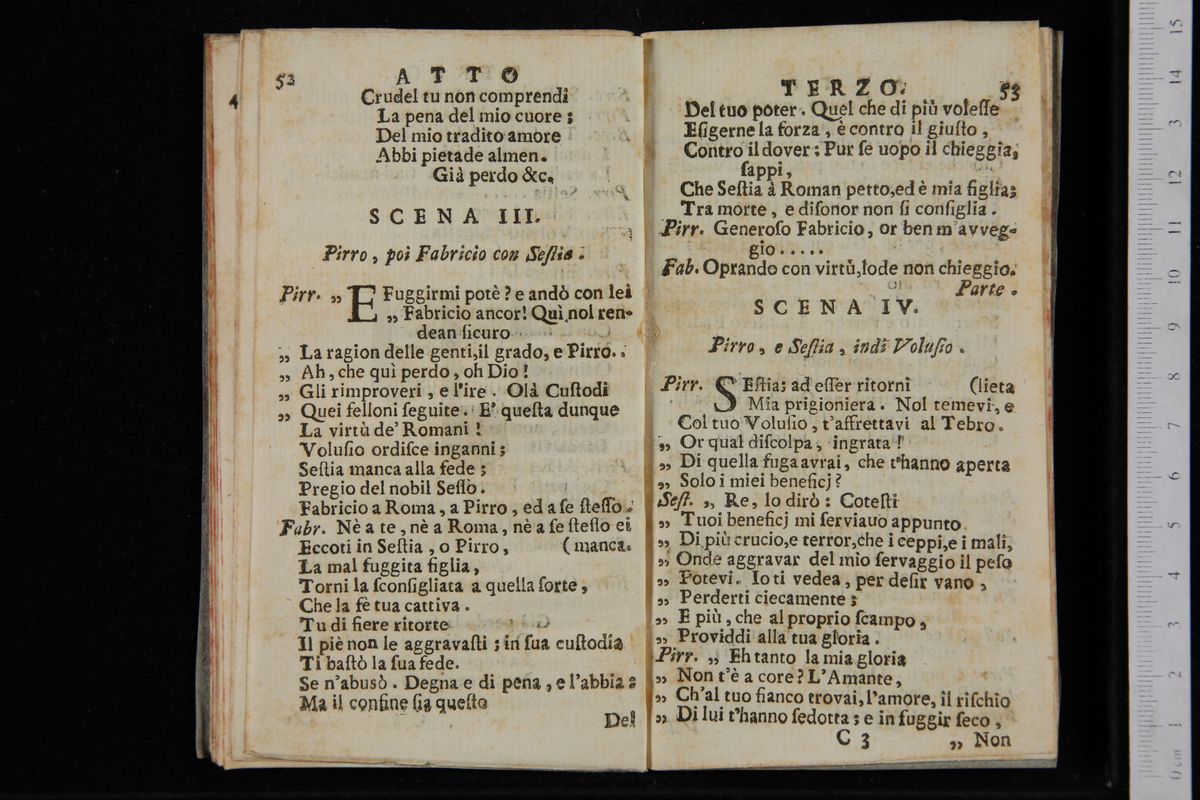 52 ATTO
Crudel tu non comprendi
La pena del mio cuore ;
Del mio tradito amore
Abbi pietade almen.
Già perdo &c.
SCENA III.
Pirro, poi Fabricio con Sestia.
Pirr. „ E Fuggirmi potè ? e andò con lei
„ Fabricio ancor! Qui nol ren-
dean ſicuro
„ La ragion delle genti,il grado, e Pirro..
„ Ah, che quì perdo, oh Dio !
„ Gli rimproveri, e l'ire. Olà Cuſtodi
„ Quei felloni ſeguite. E' queſta dunque
La virtù de' Romani !
Voluſio ordiſce inganni ;
Seſtia manca alla fede ;
Pregio del nobil Seſſo.
Fabricio a Roma, a Pirro, ed a ſe ſteſſo.
Fabr. Nè a te, nè a Roma, nè a ſe ſteſſo ei
Eccoti in Seſtia, o Pirro, (manca.
La mal fuggita figlia,
Torni la ſconſigliata a quella ſorte,
Che la fè tua cattiva.
Tu di fiere ritorte
Il piè non le aggravaſti ; in ſua cuſtodia
Ti baſtò la ſua fede.
Se n'abusò. Degna e di pena, e l'abbia :
Ma il confine ſia queſto
Del
TERZO. 53
Del tuo poter. Quel che di più voleſſe
Eſigerne la forza, è contro il giuſto,
Contro il dover : Pur ſe uopo il chieggia,
ſappi,
Che Seſtia à Roman petto,ed è mia figlia;
Tra morte, e diſonor non ſi conſiglia.
Pirr. Generoſo Fabricio, or ben m'avveg-
gio.....
Fab. Oprando con virtù,lode non chieggio.
Parte.
SCENA IV.
Pirro, e Seſtia, indi Voluſio.
Pirr. SEſtia; ad eſſer ritorni (lieta
Mia prigioniera. Nol temevi, e
Col tuo Voluſio, t'affrettavi al Tebro.
„ Or qual diſcolpa, ingrata !
„ Di quella fuga avrai, che t'hanno aperta
„ Solo i miei beneficj ?
Seſt. „ Re, lo dirò : Coteſti
„ Tuoi beneficj mi ſerviauo appunto
„ Di più crucio,e terror,che i ceppi,e i mali,
„ Onde aggravar del mio ſervaggio il peſo
„ Potevi. Io ti vedea, per deſir vano,
„ Perderti ciecamente ;
„ E più, che al proprio ſcampo,
„ Providdi alla tua gloria.
Pirr. „ Eh tanto la mia gloria
„ Non t'è a core ? L'Amante,
„ Ch'al tuo fianco trovai, l'amore, il riſchio
„ Di lui t'hanno ſedotta ; e in fuggir ſeco,
C 3 „ Non
4
15
14
13
12
11
10
9
8
7
6
5
4
3
2
1
0 cm